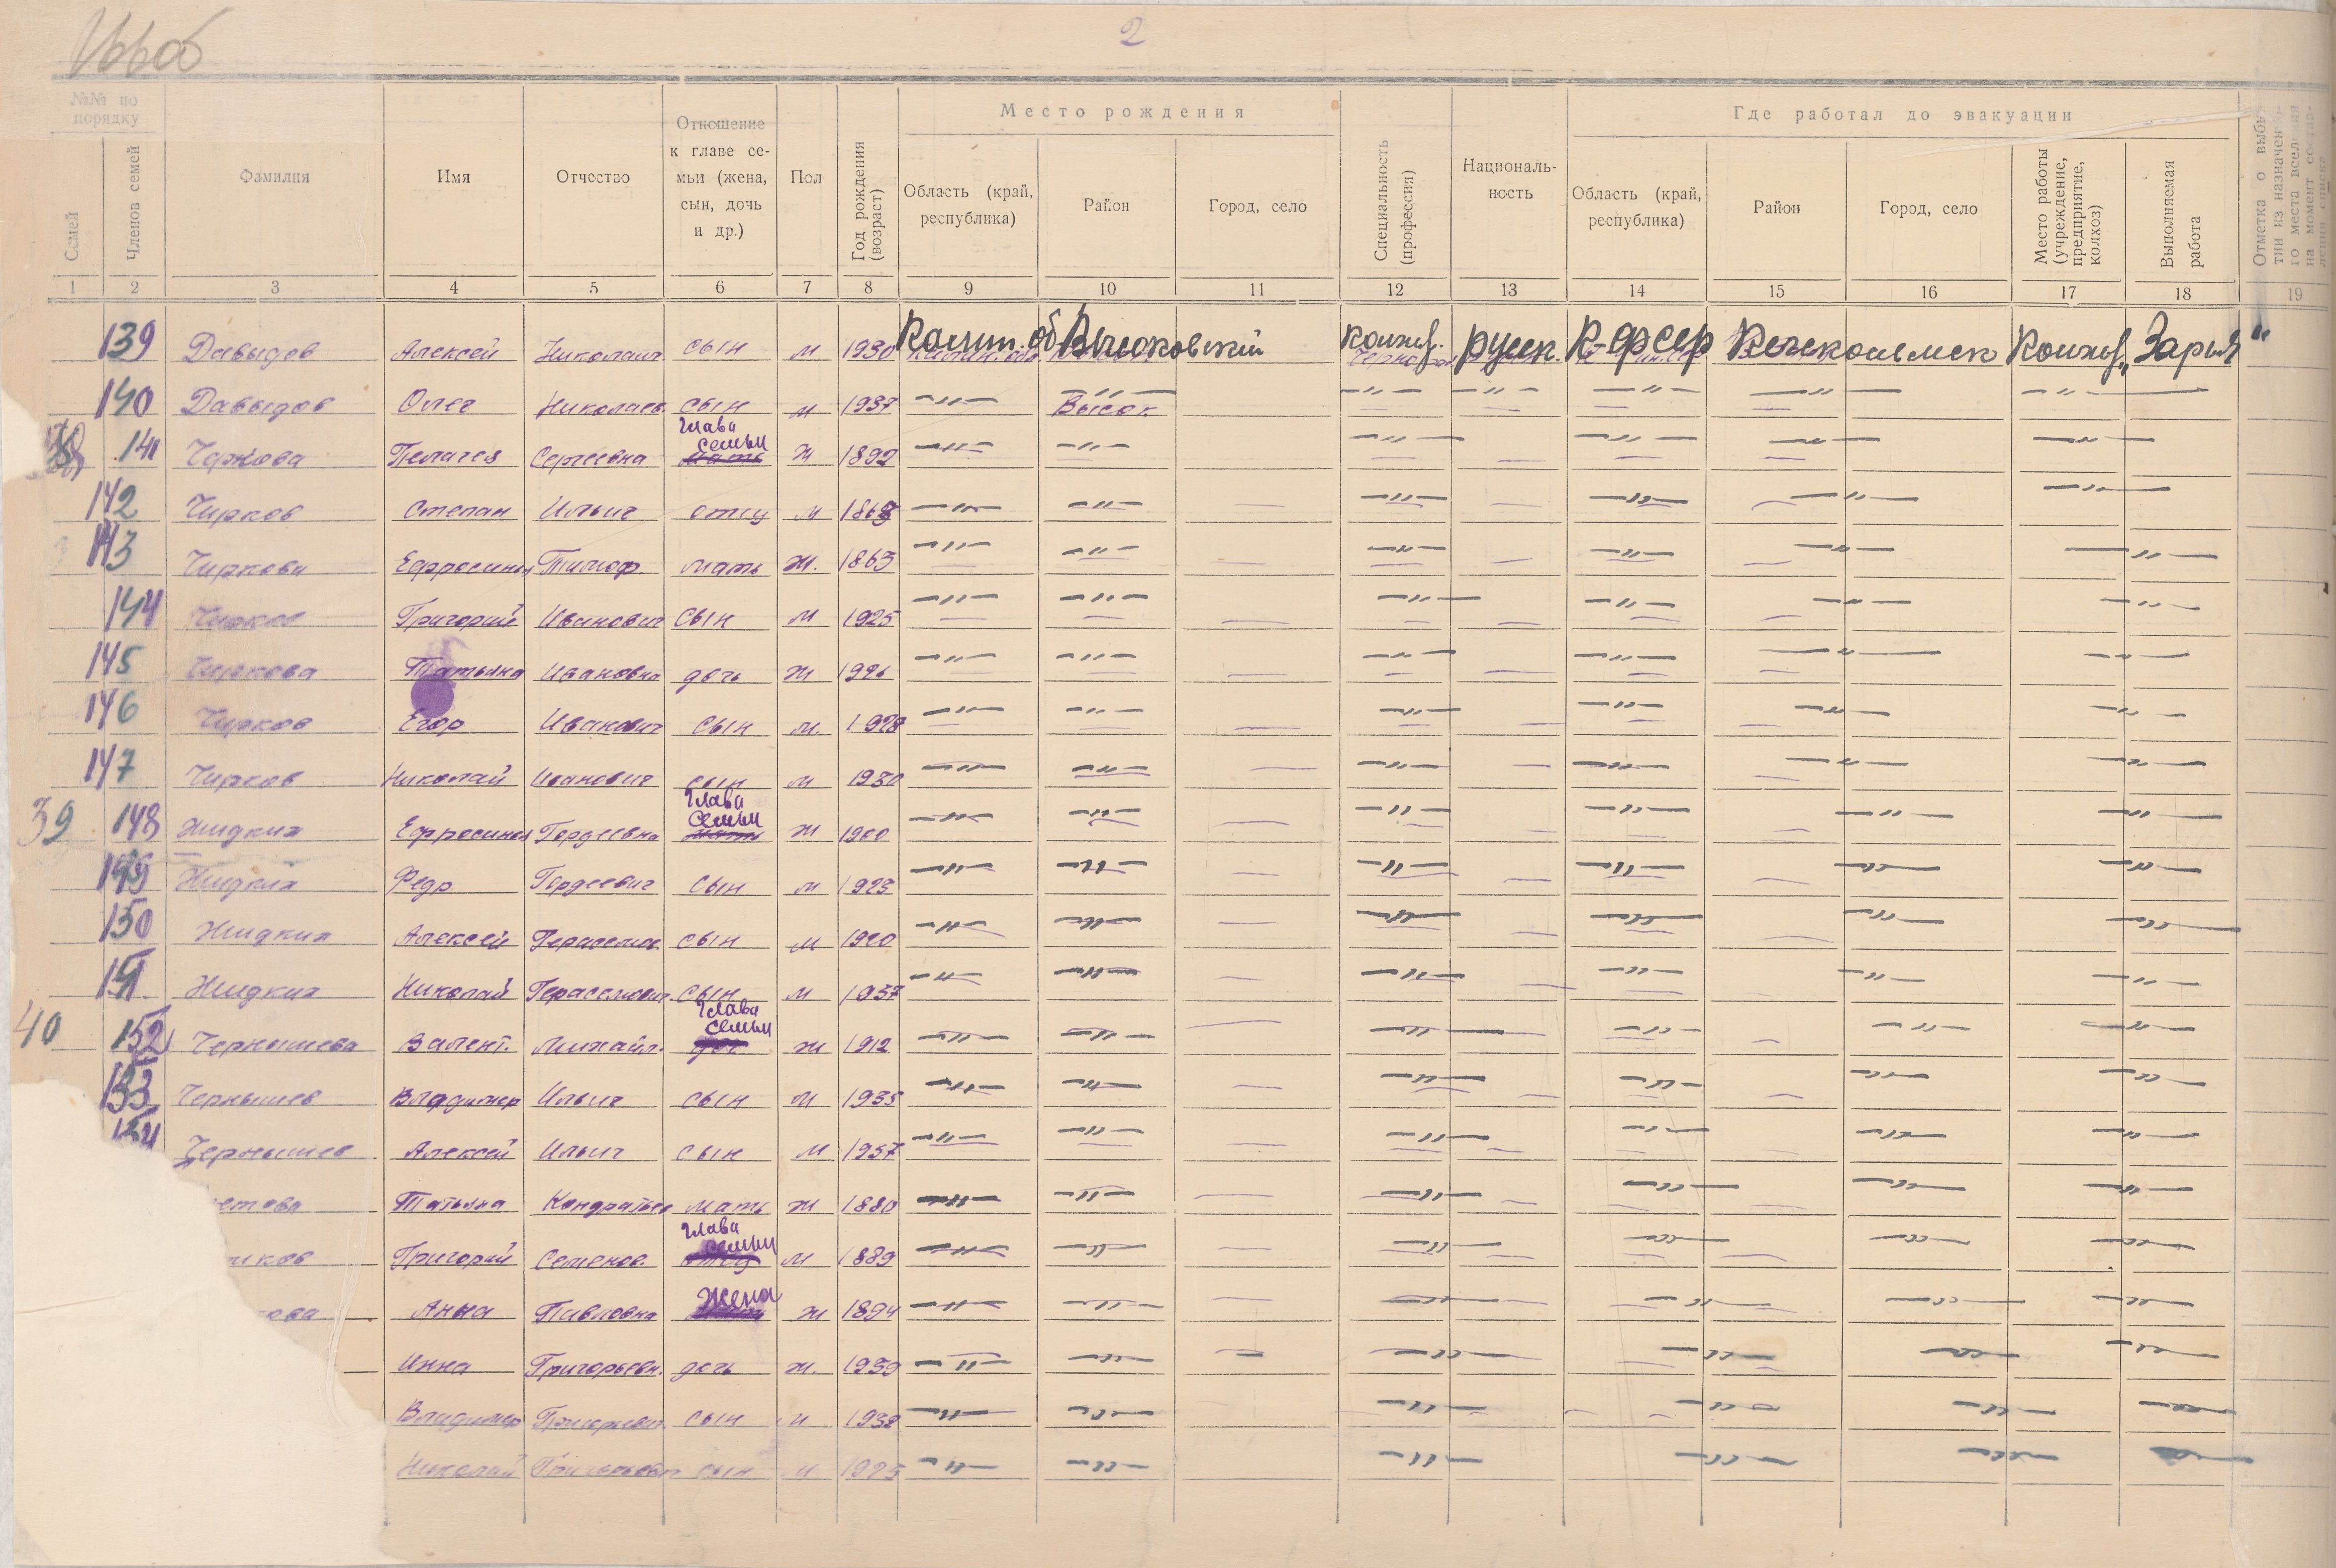 2
№№ по порядку
Семей
Членов семей
Фамилия
Имя
Отчество
Отношение к главе семьи (жена, сын, дочь и др.)
Пол
Год рождения (возраст)
Место рождения
Область (край, республика)
Район
Город, село
Специальность (профессия)
Националь-ность
Где работал до эвакуации
Область (край, республика)
Район
Город, село
Место работы (учреждение, предприятие, колхоз)
Выполняемая работа
1 2 3 4 5 6 7 8 9 10 11 12 13 14 15 16 17 18 19
139 Давыдов Алексей Николаич сын м 1930 Калин. об Высоковский колхоз. русск. К-фсср колхоз „Заря"
140 Давыдов Олег Николаев. сын м 1937 —"— —"— Высок —"— —"— —"— —"— —"—
141 Чиркова Пелагея Сергеевна глава семьи ж 1892 —"— —"— —"— —"— —"— —"—
142 Чирков Степан Ильич отец м —"— —"— —"— —"— —"— —"—
143 Чиркова Ефросинья Тимоф. мать ж. 1863 —"— —"— —"— —"— —"— —"—
144 Чирков Григорий Иванович сын м 1925 —"— —"— —"— —"— —"— —"—
145 Чиркова Татьяна Ивановна дочь ж 1926 —"— —"— —"— —"— —"— —"—
146 Чирков Егор Иванович сын м. 1928 —"— —"— —"— —"— —"— —"—
147 Чирков Николай Иванович сын м 1930 —"— —"— —"— —"— —"— —"—
39 148 Жидких Ефросинья Гордеевна глава семьи ж 1900 —"— —"— —"— —"— —"— —"—
149 Жидких Федр Гордеевич сын м 1923 —"— —"— —"— —"— —"— —"—
150 Жидких Алексей Герасемов. сын м 1920 —"— —"— —"— —"— —"— —"—
151 Жидких Николай Герасемович сын м 1937 —"— —"— —"— —"— —"— —"—
40 152 Чернышева Валент. Михайл. глава семьи ж 1912 —"— —"— —"— —"— —"— —"—
153 Чернышев Владимер Ильич сын м 1935 —"— —"— —"— —"— —"— —"—
154 Чернышев Алексей Ильич сын м 1937 —"— —"— —"— —"— —"— —"—
етова Татьяна Кондратьев мать ж 1880 —"— —"— —"— —"— —"— —"—
иков Григорий Семенов. глава семьи м 1889 —"— —"— —"— —"— —"— —"—
кова Анна Павловна жена ж 1894 —"— —"— —"— —"— —"— —"—
Инна Григорьевн. дочь ж. 1939 —"— —"— —"— —"— —"— —"—
Владимер Григорьевич сын м 1932 —"— —"— —"— —"— —"— —"—
Николай Григорьевич сын м 1925 —"— —"— —"— —"— —"—